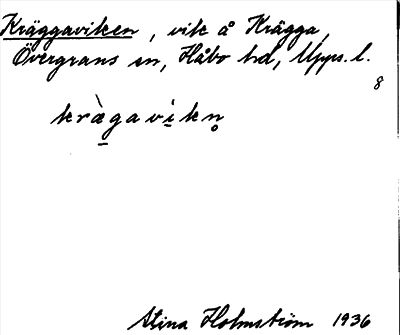 Kräggaviken, vik å Krägga,
Övergrans sn, Håbo hd, Upps. l.
8
krὰgavikn̥
Stina Holmström 1936